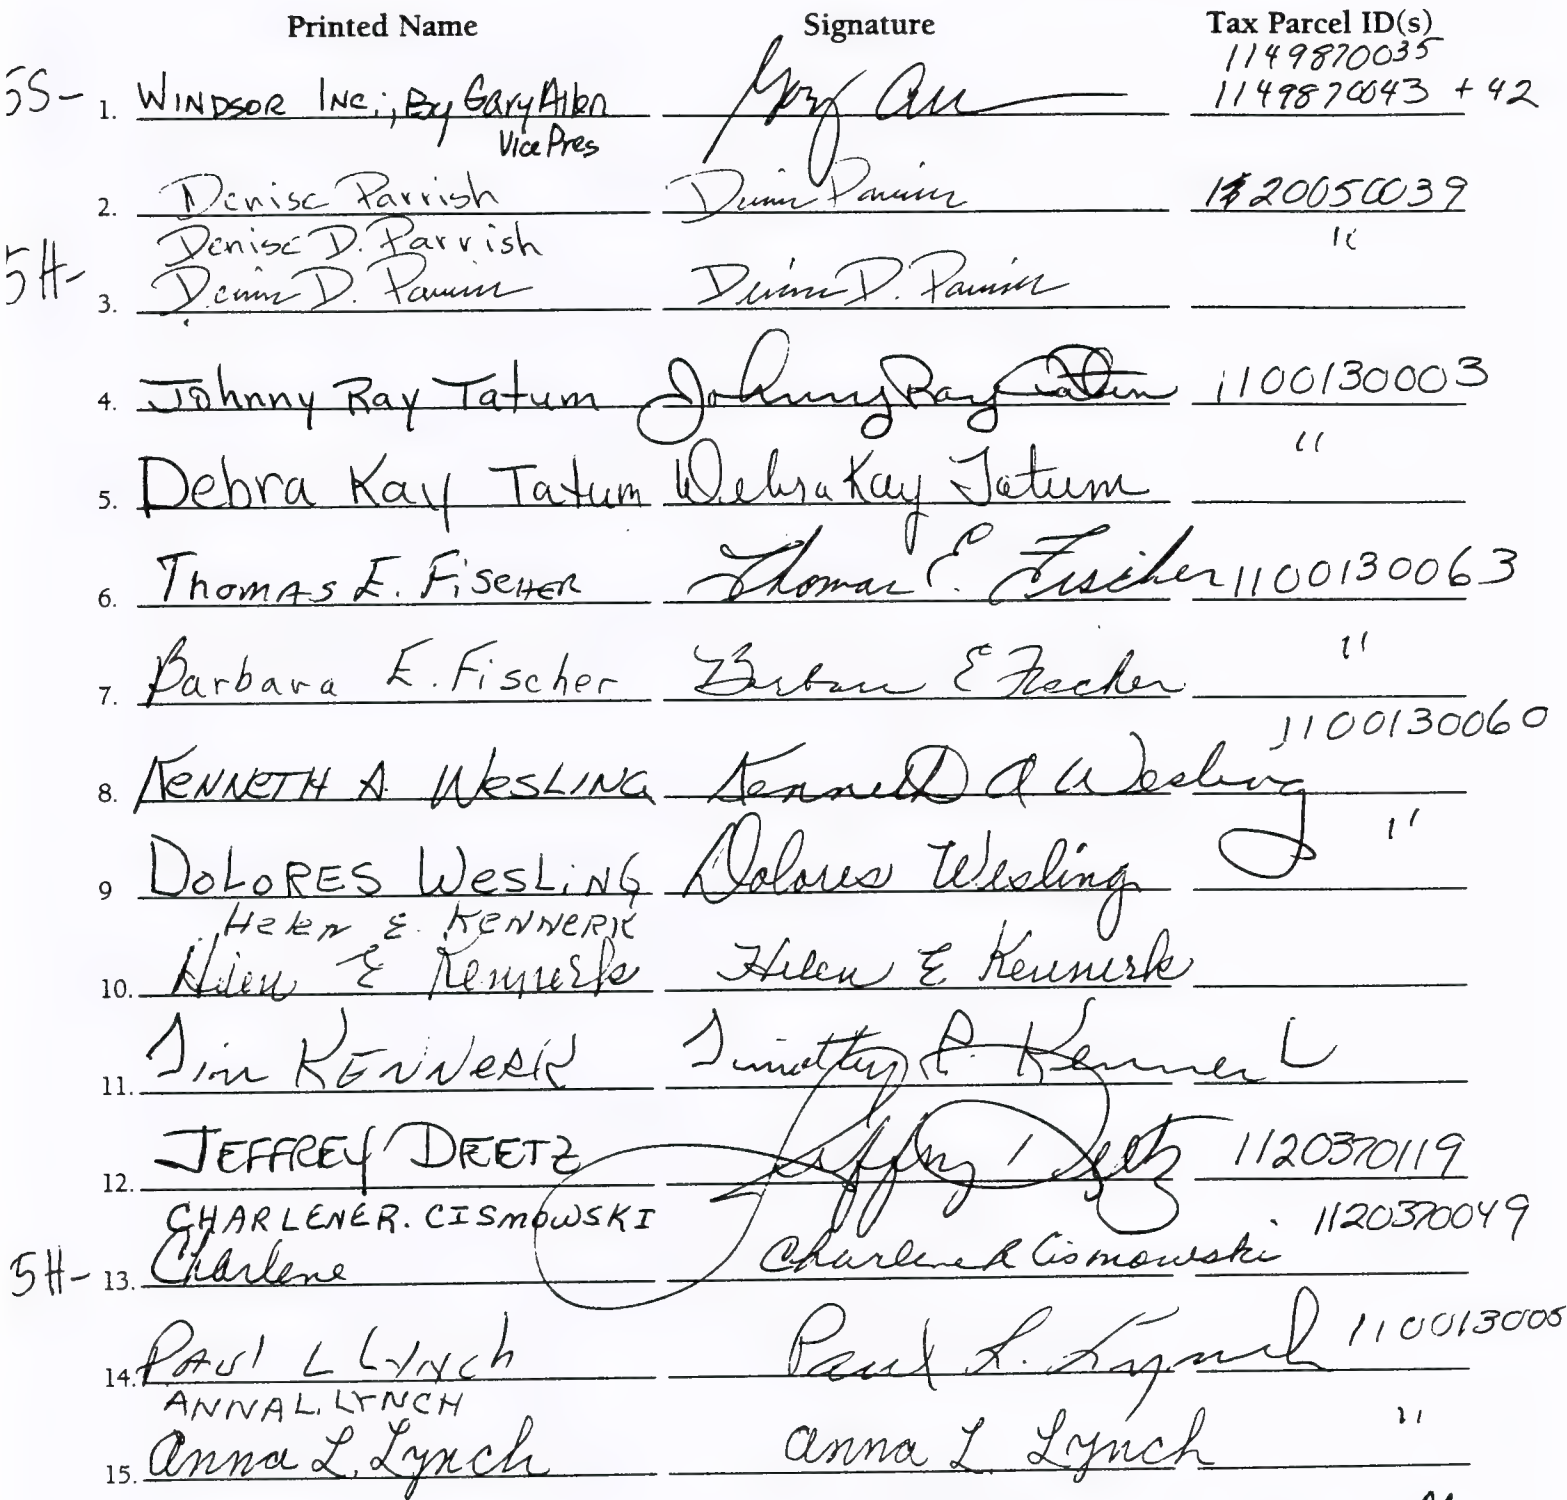 Printed Name Signature Tax Parcel ID(s)
1149870035
5S- 1. WINDSOR INC., By Gary Allen 1149870043 + 42
Vice Pres
2. Denise Parrish 1120050039
Denise D. Parrish "
5H- 3. Denise D. Parrish Denise D. Parrish
4. Johnny Ray Tatum Johnny Ray Tatum 1100130003
"
5. Debra Kay Tatum Debra Kay Tatum
6. Thomas E. FiscHER Thomas E. Fischer 1100130063
"
7. Barbara E. Fischer Barbara E Fischer
1100130060
8. KENNETH A. WESLING Kenneth A Wesling
"
9 DOLORES WESLiNG Dolores Wesling
HELEN E. KENNERK
10. Helen E Kennerk Helen E Kennerk
11. Tim KENNERK Timothy P. Kennerk
12. JEFFREY DEETZ Jeffrey Deetz 1120370119
CHARLENE R. CISMOWSKI 1120370049
5H- 13. Charlene Charlene R Cismowski
14. PAUl L LyNch Paul L. Lynch 110013005
ANNA L. LYNCH "
15. Anna L. Lynch Anna L. Lynch